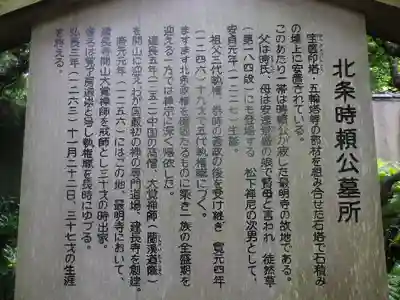 北条時頼公墓所
宝篋印塔・五輪塔等の部材を組み合せた石塔で石積み
の壇上に安置されている。
このあたり一帯は時頼公が寂した最明寺の故地である。
父は時氏、母は安達景盛の娘で賢母と言われ、徒然草
(第一八四段)にも登場する 松下禅尼の次男として、
安貞元年(一二二七)生誕。
祖父三代執権 泰時の善政の後を受け継ぎ 寛元四年
(一二四六)十九才で五代執権職につく。
ますます北条政権を確固たるものに築き一族の全盛期を
迎える一方では禅宗に深く帰依した。
建長五年(一二五三)中国の高僧 大覚禅師(蘭溪道隆)
を開山に迎えわが国最初の禅の専門道場、建長寺を創建。
康元元年(一二五六)にはこの地、最明寺において、
建長寺開山大覚禅師を戒師とし三十才の時出家。
覚了房道崇と号し執権職を長時にゆずる。
弘長三年(一二六三)十一月二十二日、三十七才の生涯
を終える。